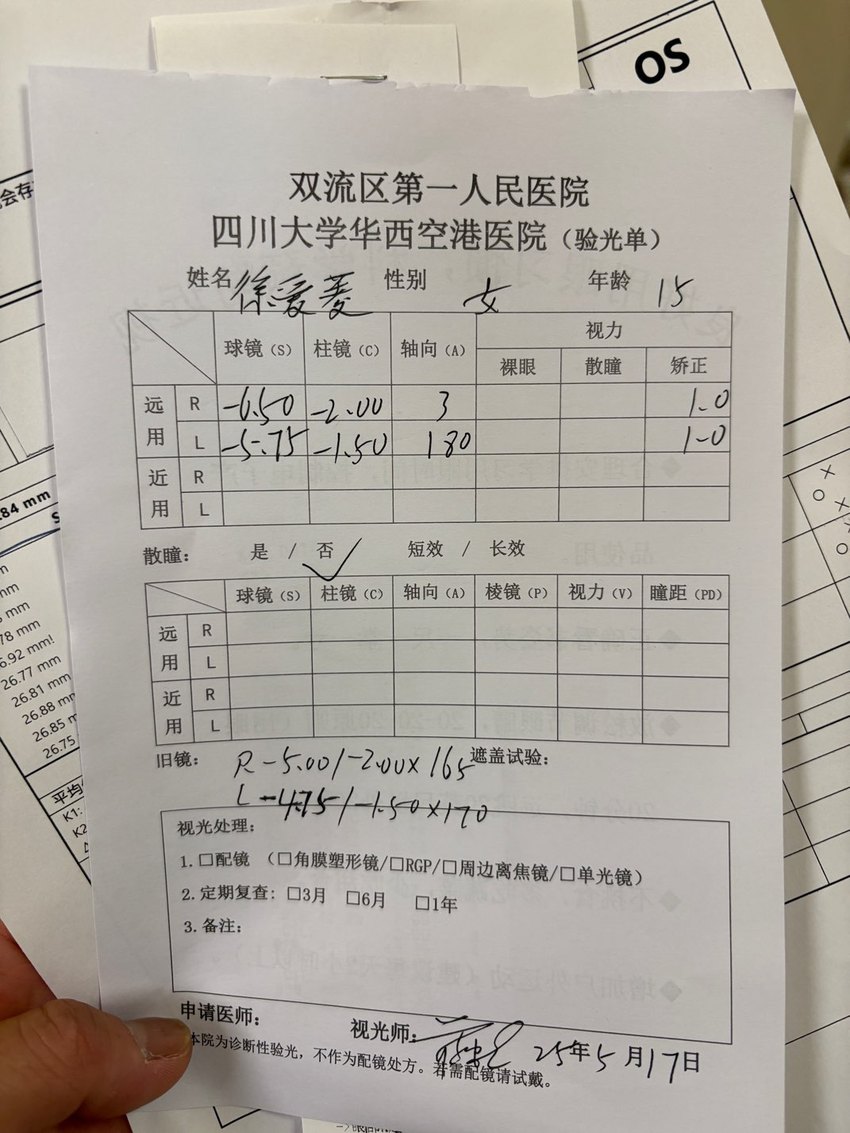 OS
双流区第一人民医院
四川大学华西空港医院（验光单）
姓名 徐爱菱 性别 女 年龄 15
球镜（S） 柱镜（C） 轴向（A） 视力
裸眼 散瞳 矫正
远用 R -6.50 -2.00 3 1.0
L -5.75 -1.50 180 1.0
近用 R
L
散瞳： 是 / 否 ✓ 短效 / 长效
球镜（S） 柱镜（C） 轴向（A） 棱镜（P） 视力（V） 瞳距（PD）
远用 R
L
近用 R
L
旧镜： R -5.00/-2.00×165 遮盖试验：
L -4.75/-1.50×170
视光处理：
1.□配镜 （□角膜塑形镜/□RGP/□周边离焦镜/□单光镜）
2.定期复查：□3月 □6月 □1年
3.备注：
申请医师： 视光师： 25年5月17日
本院为诊断性验光，不作为配镜处方。若需配镜请试戴。
会存
84 mm
78 mm
6.92 mm!
26.77 mm
26.81 mm
26.88 mm
26.85 m
26.75
平均
K1:
K2